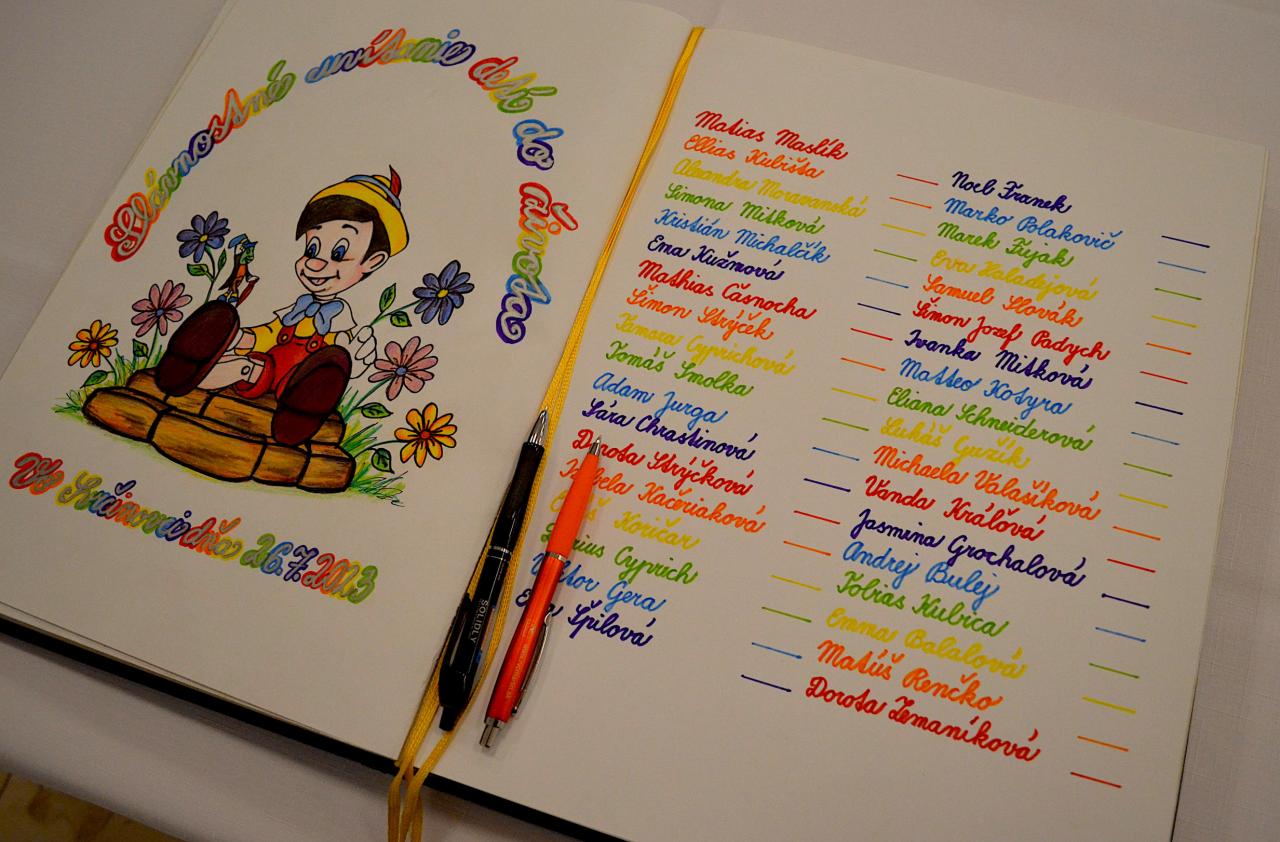 Slávnostné uvítanie detí do života
Vo Svinnej dňa 26.7.2013
Matias Maslík
Ellias Kubišta
Alexandra Moravanská
Simona Mitková
Kristián Michalčík
Ema Kužmová
Mathias Čásnocha
Šimon Strýček
Tamara Cyprichová
Tomáš Smolka
Adam Jurga
Sára Chrastinová
Dorota Strýčková
Kačeriaková
Koričar
Cyprich
Viktor Gera
Ema Špilová
Noel Franek
Marko Polakovič
Marek Fujak
Eva Haladejová
Samuel Slovák
Šimon Jozef Padych
Ivanka Mitková
Matteo Kotyra
Eliana Schneiderová
Lukáš Guzík
Michaela Valašíková
Vanda Kráľová
Jasmina Grochalová
Andrej Bulej
Tobias Kubica
Emma Balalová
Matúš Renčko
Dorota Zemaníková
SOLIDLY